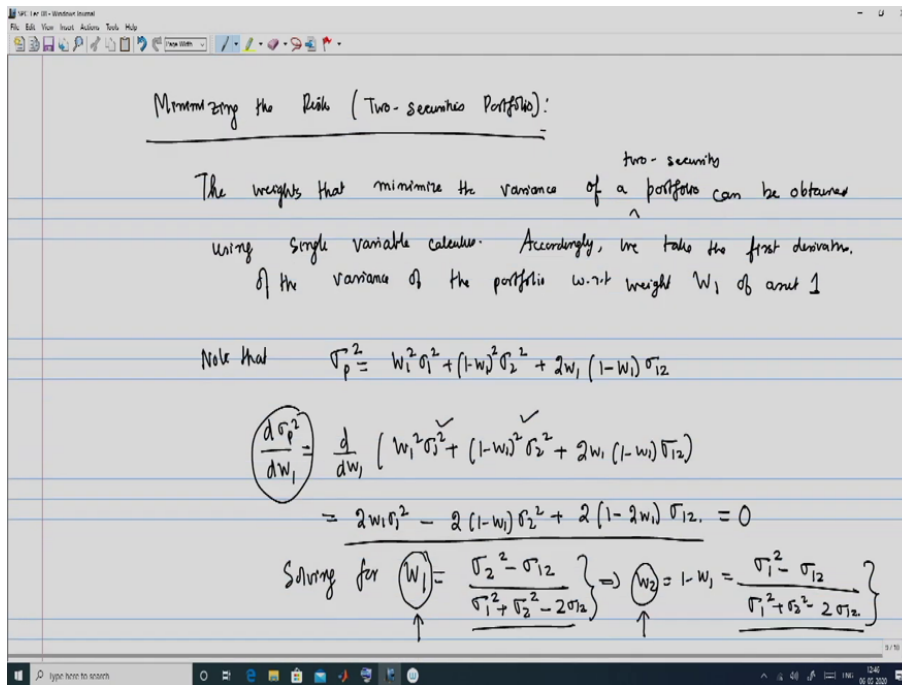 SPC Lec 08 - Windows Journal
File Edit View Insert Actions Tools Help
Page Width
Minimizing the Risk (Two-securities Portfolio):
two-security
The weights that minimize the variance of a ^ portfolio can be obtained
using single variable calculus. Accordingly, we take the first derivative.
of the variance of the portfolio w.r.t weight W₁ of asset 1
Note that σₚ² = W₁²σ₁² + (1-W₁)²σ₂² + 2W₁(1-W₁)σ₁₂
dσₚ²/dW₁ = d/dW₁ (W₁²σ₁² + (1-W₁)²σ₂² + 2W₁(1-W₁)σ₁₂)
= 2W₁σ₁² - 2(1-W₁)σ₂² + 2(1-2W₁)σ₁₂. = 0
Solving for W₁ = (σ₂² - σ₁₂)/(σ₁² + σ₂² - 2σ₁₂) } ⇒ W₂ = 1-W₁ = (σ₁² - σ₁₂)/(σ₁² + σ₂² - 2σ₁₂) }
9/10
Type here to search
ENG
12:46
06-05-2020